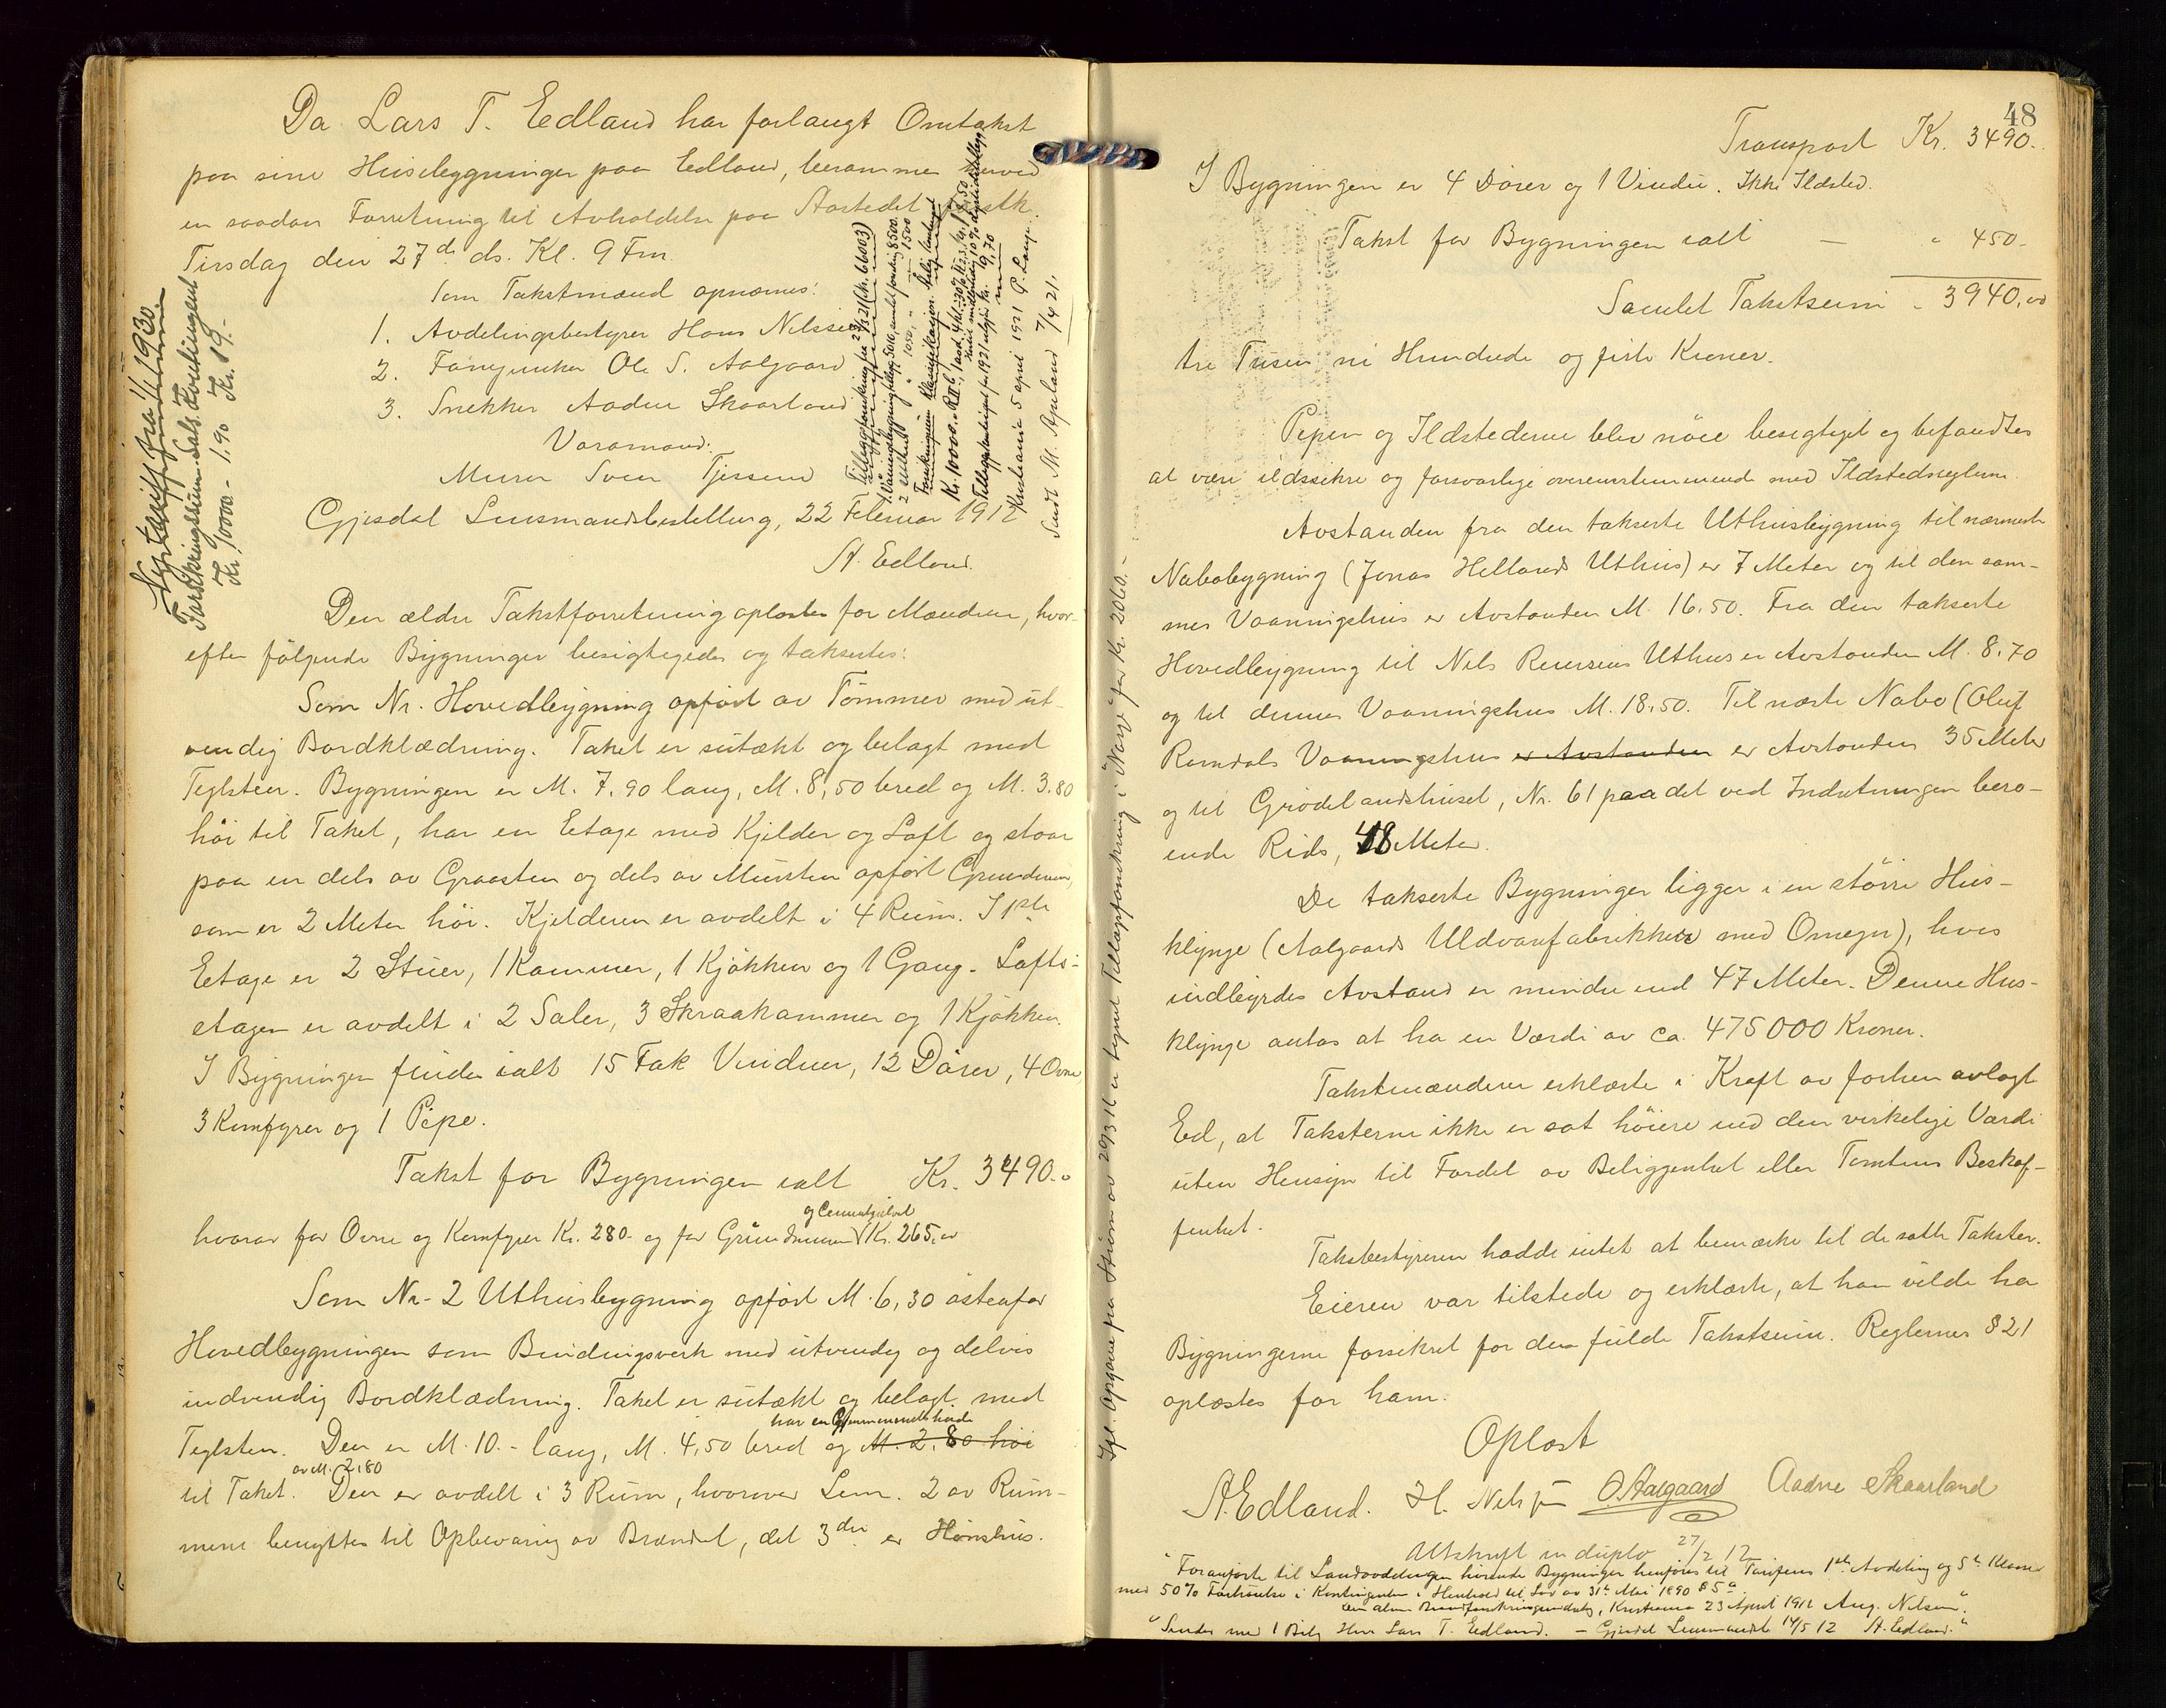 Da Lars T. Edland har forlangt Omtakst
paa sine Husebygninger paa Edland, berammes herved
en saadan Forretning til Avholdelse paa Aastedet førstk.
Tirsdag den 27de ds. Kl. 9 Fm.
Som Takstmænd opnævnes:
1. Avdelingsbestyrer Hans Nilssen
2. Farvemester Ole S. Aalgaard
3. Snekker Aadne Skaarland
Varamand:
Murer Sven Tjessem
Gjesdal Lensmandsbestilling, 22 Februar 1912
A. Edland.
Nytariff fra 1/1 1930.
Forsikringssum Sats Kontingent
Kr. 10000 - 1.90 Kr. 19.-
Kristiania 5 april 1921 P. Lange
Sendt M. Apeland 7/4 21.
Den ældre Takstforretning oplæstes for Mændene, hvor-
efter følgende Bygninger besigtigedes og takseredes:
Som Nr. Hovedbygning opført av Tømmer med ut-
vendig Bordklædning. Taket er sutækt og belagt med
Teglsten. Bygningen er M. 7,90 lang, M. 8,50 bred og M. 3.80
höi til Taket, har en Etage med Kjelder og Loft og staar
paa en dels av Graasten og dels av Mursten opført Grundmur,
som er 2 Meter höi. Kjelderen er avdelt i 4 Rum. I 1ste
Etage er 2 Stuer, 1 Kammer, 1 Kjøkken og 1 Gang. Lofts-
etagen er avdelt i 2 Saler, 3 Skraakammer og 1 Kjøkken.
I Bygningen findes ialt 15 Fak Vinduer, 12 Dører, 4 Ovne,
3 Komfyrer og 1 Pipe.
Takst for Bygningen ialt Kr. 3490.-
og Cementgulvet
hvorav for Ovne og Komfyrer Kr. 280.- og for Grundmuren Kr. 265,-
Som Nr. 2 Uthusbygning opført M. 6,30 østenfor
Hovedbygningen som Bindingsverk med utvendig og delvis
indvendig Bordklædning. Taket er sutækt og belagt med
har en Gjennemsnitshøide
Teglsten. Den er M. 10.- lang, M. 4,50 bred og M. 2.80 höi
av M. 2,80
til Taket. Den er avdelt i 3 Rum, hvorover Lem. 2 av Rum-
mene benyttes til Opbevaring av Brændsel, det 3die er Hönshus.
48
Transport Kr. 3490.-
I Bygningen er 4 Dører og 1 Vindu. Ikke Ildsted.
Takst for Bygningen ialt — " 450.-
Samlet Takstsum - 3940,00
tre Tusen ni Hundrede og firti Kroner.
Pipen og Ildstederne blev nöie besigtiget og befandtes
at være ildssikre og forsvarlige overensstemmende med Ildstedsreglerne.
Avstanden fra den takserte Uthusbygning til nærmeste
Nabobygning (Jonas Hellands Uthus) er 7 Meter og til den sam-
mes Vaaningshus er Avstanden M. 16.50. Fra den takserte
Hovedbygning til Nils Reiersens Uthus er Avstanden M. 8.70
og til dennes Vaaningshus M. 18.50. Til næste Nabo (Oluf
Romdals Vaaningshus er Avstanden er Avstanden 35 Meter
og til Grödelandshuset, Nr. 61 paa det ved Indretningen bero-
ende Rids, 48 Meter.
De takserte Bygninger ligger i en större Hus-
klynge (Aalgaards Uldvarefabrikker med Omegn), hvis
indbyrdes Avstand er mindre end 47 Meter. Denne Hus-
klynge antas at ha en Værdi av ca. 475000 Kroner.
Takstmændene erklærte i Kraft av forhen avlagt
Ed, at Taksterne ikke er sat höiere end den virkelige Værdi
uten Hensyn til Fordel av Beliggenhet eller Tomtens Beskaf-
fenhet.
Takstbestyreren hadde intet at bemærke til de satte Takster.
Eieren var tilstede og erklærte, at han vilde ha
Bygningerne forsikret for den fulde Takstsum. Reglernes § 21
oplæstes for ham.
Oplæst
A. Edland. H. Nilssen O. Aalgaard Aadne Skaarland
Utskrift in duplo 27/2 12
"Foranførte til Landavdelingen hörende Bygninger henføres til Tariffens 1ste Avdeling og 5te Klasse
med 50% Forhøielse i Kontingenten i Henhold til Lov av 31te Mai 1890 § 5a
Den alm. Brandforsikringsindretn., Kristiania 23 April 1912 Aug. Nilsen".
"Sendes med 1 Bilag Herr Lars T. Edland. - Gjesdal Lensmandsb. 14/5 12 A. Edland."